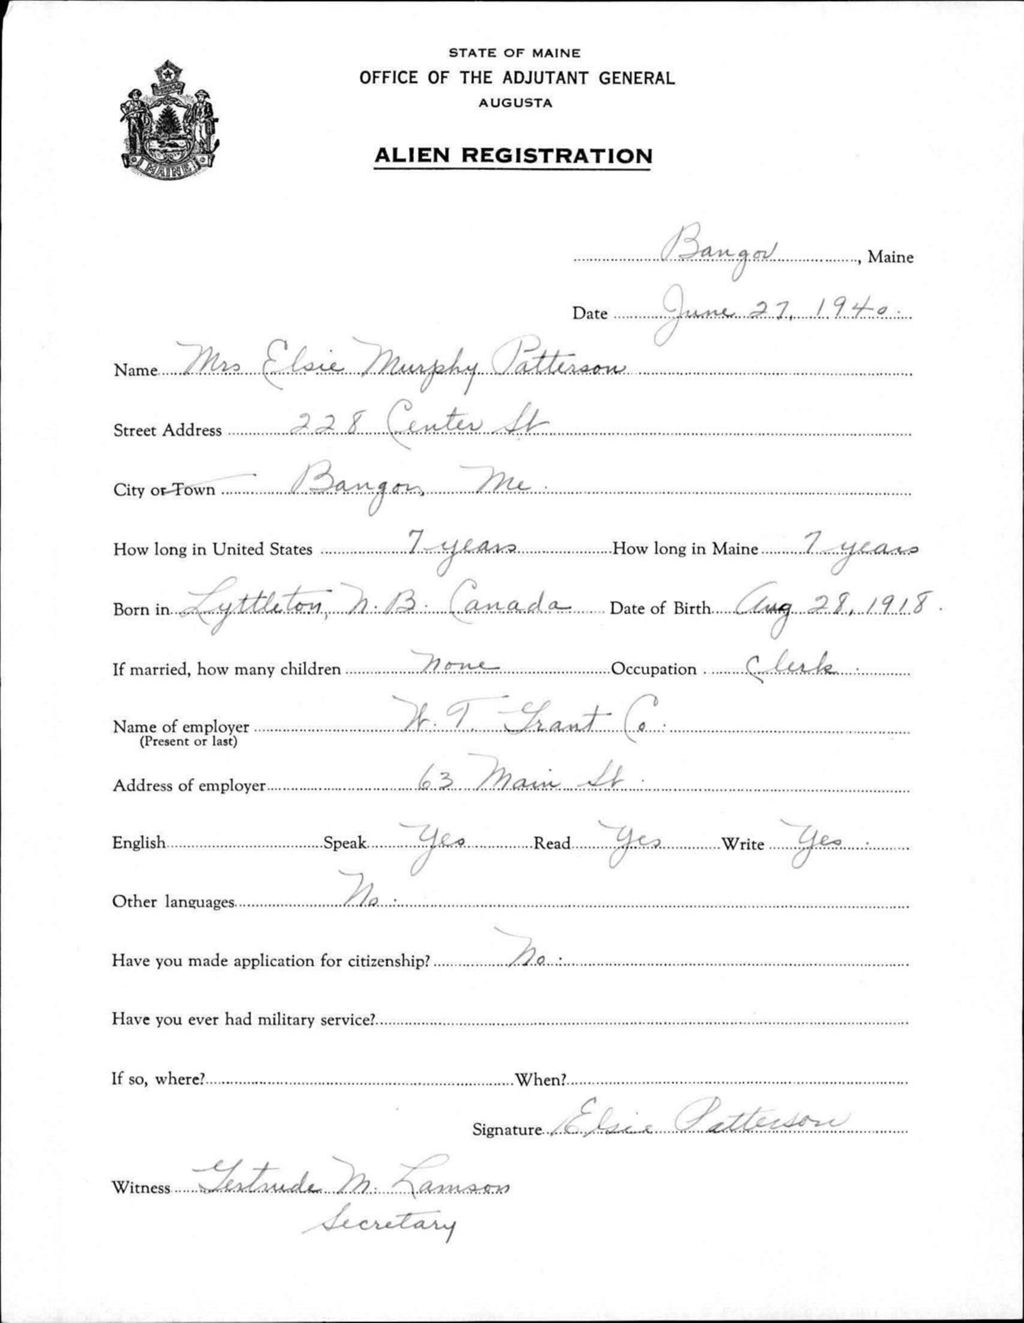 STATE OF MAINE
OFFICE OF THE ADJUTANT GENERAL
AUGUSTA
ALIEN REGISTRATION
MAINE
Bangor, Maine
Date June 27, 1940.
Name Mrs Elsie Murphy Patterson
Street Address 228 Center St
City or Town Bangor, Me.
How long in United States 7 years How long in Maine 7 years
Born in Lyttleton, N.B. Canada Date of Birth Aug 28, 1918.
If married, how many children None Occupation Clerk.
Name of employer W. T. Grant Co.
(Present or last)
Address of employer 63 Main St.
English Speak Yes Read Yes Write Yes.
Other languages No.
Have you made application for citizenship? No.
Have you ever had military service?
If so, where? When?
Signature Elsie Patterson
Witness Gertrude M. Lamson
Secretary